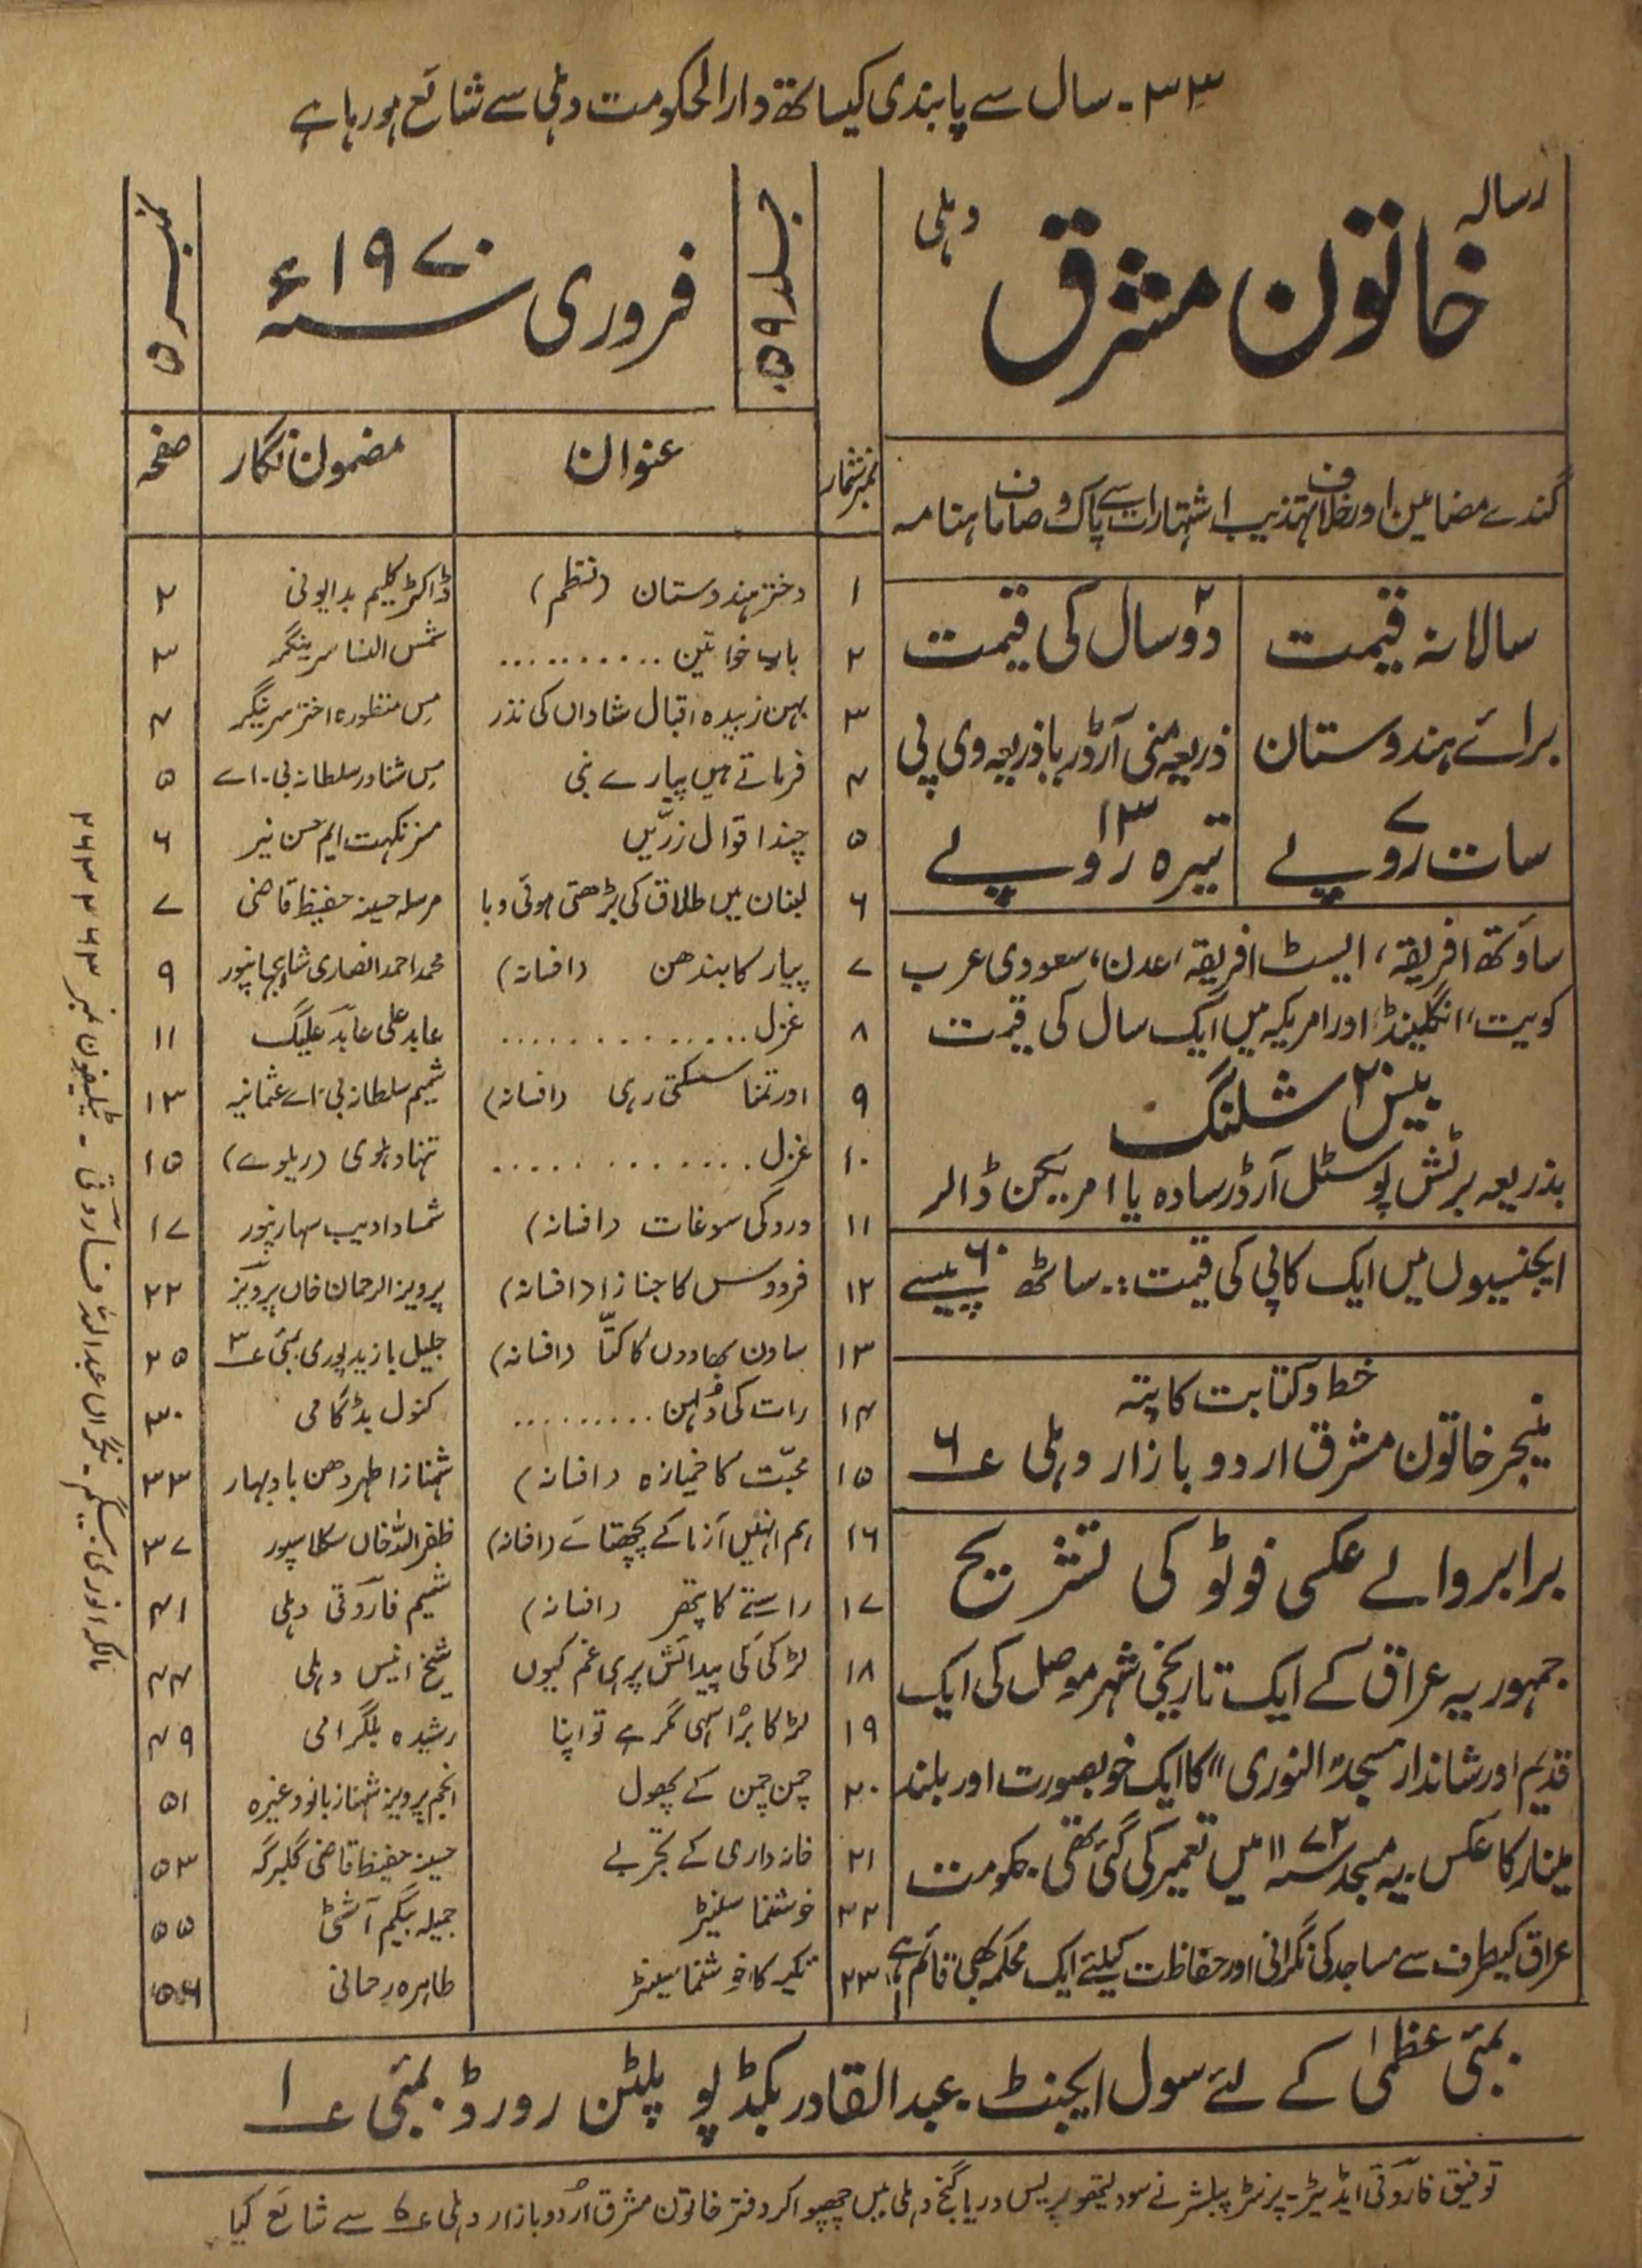 ۳۳۔ سال سے پابندی کیساتھ دارالحکومت دہلی سے شائع ہو رہا ہے
رسالہ
خاتون مشرق دہلی
گندے مضامین اور خلاف تہذیب اشتہارات سے پاک و صاف ماہنامہ
سالانہ قیمت
برائے ہندوستان
سات ۷ روپے
دو ۲ سال کی قیمت
ذریعہ منی آرڈر یا ذریعہ وی پی
تیرہ ۱۳ روپے
ساؤتھ افریقہ، ایسٹ افریقہ، عدن، سعودی عرب
کویت، انگلینڈ، اور امریکہ میں ایک سال کی قیمت
بیس ۲۰ شلنگ
بذریعہ برٹش پوسٹل آرڈر سادہ یا امریکن ڈالر
ایجنسیوں میں ایک کاپی کی قیمت :۔ ساٹھ ۶۰ پیسے
خط و کتابت کا پتہ
منیجر خاتون مشرق اردو بازار دہلی ۶
برابر والے عکسی فوٹو کی تشریح
جمہوریہ عراق کے ایک تاریخی شہر موصل کی ایک
قدیم اور شاندار مسجد "النوری" کا ایک خوبصورت اور بلند
مینار کا عکس۔ یہ مسجد ۱۱۷۲ میں تعمیر کی گئی تھی۔ حکومت
عراق کیطرف سے مساجد کی نگرانی اور حفاظت کیلئے ایک محکمہ بھی قائم ہے،
جلد ۵۹
فروری ۱۹۷۰ء
نمبر ۵
نمبر شمار عنوان مضمون نگار صفحہ
۱ دختر ہندوستان (نظم) ڈاکٹر کلیم بدایونی ۲
۲ باب خواتین .......... شمس النسا سرینگر ۳
۳ بہن زبیدہ اقبال شاداں کی نذر مس منظورہ اختر سرینگر ۴
۴ فرماتے ہیں پیارے نبی مس شناور سلطانہ بی۔اے ۵
۵ چند اقوال زرّیں مسز نکہت ایم حسن نیر ۶
۶ لبنان میں طلاق کی بڑھتی ہوئی وبا مرسلہ حسینہ حفیظ قاضی ۷
۷ پیار کا بندھن (افسانہ) محمد احمد انصاری شاہجہانپور ۹
۸ غزل ............. عابد علی عابد علیگ ۱۱
۹ اور تمنا سسکتی رہی (افسانہ) شمیم سلطانہ بی۔اے عثمانیہ ۱۳
۱۰ غزل ............. تنہا دہلوی (ریلوے) ۱۵
۱۱ درد کی سوغات (افسانہ) شمشاد ادیب سہارنپور ۱۷
۱۲ فردوس کا جنازا (افسانہ) پرویز الرحمان خاں پرویز ۲۲
۱۳ ساون بھادوں کا کتّا (افسانہ) جلیل بازید پوری بمبئی ۳ ۲۵
۱۴ رات کی دُلہن ......... کنول بڈگامی ۳۰
۱۵ محبّت کا خمیازہ (افسانہ) شہناز اطہر دھن باد بہار ۳۳
۱۶ ہم انہیں آزما کے پچھتائے (افسانہ) ظفر اللہ خاں سکلاسپور ۳۷
۱۷ راستے کا پتھر (افسانہ) شمیم فاروقی دہلی ۴۱
۱۸ لڑکی کی پیدائش پر ہی غم کیوں شیخ انیس دہلی ۴۴
۱۹ لڑکا بڑا سہی مگر ہے تو اپنا رشیدہ بلگرامی ۴۹
۲۰ چمن چمن کے پھول انجم پرویز شہناز بانو وغیرہ ۵۱
۲۱ خانہ داری کے تجربے حسینہ حفیظ قاضی گلبرگہ ۵۳
۲۲ خوشنما سلنیڑ جمیلہ بیگم آشٹی ۵۵
۲۳ تکیہ کا خوشنما سینٹر طاہرہ رحمانی ۵۶
مالکہ انوری بیگم۔ نگراں عبداللہ فاروقی۔ ٹیلیفون نمبر ۲۶۳۲۶۳
بمبئی عظمیٰ کے لئے سول ایجنٹ۔ عبدالقادر بکڈپو پلٹن روڈ۔ بمبئی ۱
توفیق فاروقی ایڈیٹر۔ پرنٹر پبلشر نے سود لیتھو پریس دریا گنج دہلی میں چھپوا کر دفتر خاتون مشرق اُردو بازار دہلی ۶ سے شائع کیا۔